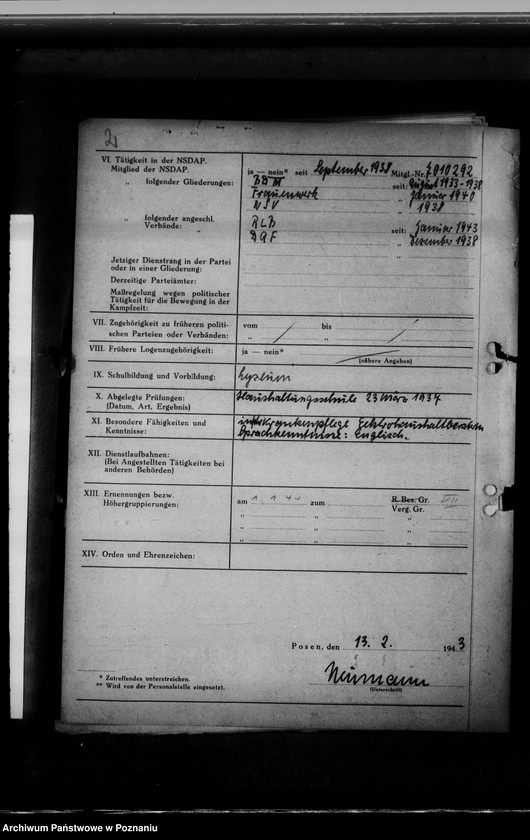 2
VI. Tätigkeit in der NSDAP.
Mitglied der NSDAP. ja — nein* seit September 1938 Mitgl.-Nr. 7010292
„ folgender Gliederungen: BDM seit: August 1933-1938
Frauenwerk „ Januar 1940
NSV „ 1938
„ folgender angeschl.
Verbände: „ RLB seit: Januar 1943
DAF „ Dezember 1938
„
Jetziger Dienstrang in der Partei
oder in einer Gliederung:
Derzeitige Parteiämter:
Maßregelung wegen politischer
Tätigkeit für die Bewegung in der
Kampfzeit:
VII. Zugehörigkeit zu früheren politi-
schen Parteien oder Verbänden: vom bis
„ „
VIII. Frühere Logenzugehörigkeit: ja — nein*
(nähere Angaben)
IX. Schulbildung und Vorbildung: Lyzeum
X. Abgelegte Prüfungen: Haushaltungsschule 23 März 1934
(Datum, Art, Ergebnis)
XI. Besondere Fähigkeiten und
Kenntnisse: Krankenpflege
Sprachkenntnisse: Englisch.
XII. Dienstlaufbahnen:
(Bei Angestellten Tätigkeiten bei
anderen Behörden)
XIII. Ernennungen bezw. am 1 1 44 zum R. Bes. Gr. VII
Höhergruppierungen: Verg. Gr.
„ „ „
„ „ „
„ „ „
XIV. Orden und Ehrenzeichen:
Posen, den 13. 2. 1943
* Zutreffendes unterstreichen.
** Wird von der Personalstelle eingesetzt.
Neumann
(Unterschrift)
Archiwum Państwowe w Poznaniu